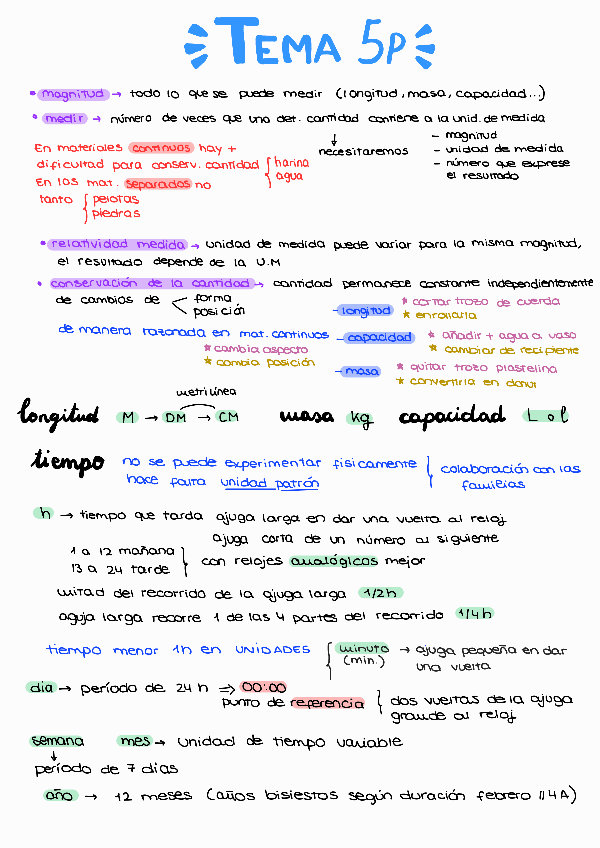 TEMA 5P
• magnitud → todo lo que se puede medir (longitud, masa, capacidad...)
• medir → número de veces que una det. cantidad contiene a la unid. de medida
↓
necesitaremos
- magnitud
- unidad de medida
- número que exprese
el resultado
En materiales continuos hay +
dificultad para conserv. cantidad { harina
agua
En los mat. separados no
tanto { pelotas
piedras
• relatividad medida → unidad de medida puede variar para la misma magnitud,
el resultado depende de la U.M
• conservación de la cantidad → cantidad permanece constante independientemente
de cambios de < forma
posición
de manera razonada en mat. continuos
* cambia aspecto
* cambia posición
- longitud
* cortar trozo de cuerda
* enrollarla
- capacidad
* añadir + agua a vaso
* cambiar de recipiente
- masa
* quitar trozo plastelina
* convertirla en donut
metrilínea
longitud M → DM → CM masa kg capacidad L o l
tiempo no se puede experimentar fisicamente
hace falta unidad patrón
colaboración con las
familias
h → tiempo que tarda ajuga larga en dar una vuelta al reloj
ajuga corta de un número al siguiente
1 a 12 mañana
13 a 24 tarde
} con relojes analógicos mejor
mitad del recorrido de la ajuga larga 1/2h
aguja larga recorre 1 de las 4 partes del recorrido 1/4h
tiempo menor 1h en UNIDADES { minuto → ajuga pequeña en dar
(min.) una vuelta
dia → período de 24 h ⇒ 00:00
punto de referencia
{ dos vueltas de la ajuga
grande al reloj
semana mes → unidad de tiempo variable
↓
período de 7 días
año → 12 meses (años bisiestos según duración febrero 1/4A)